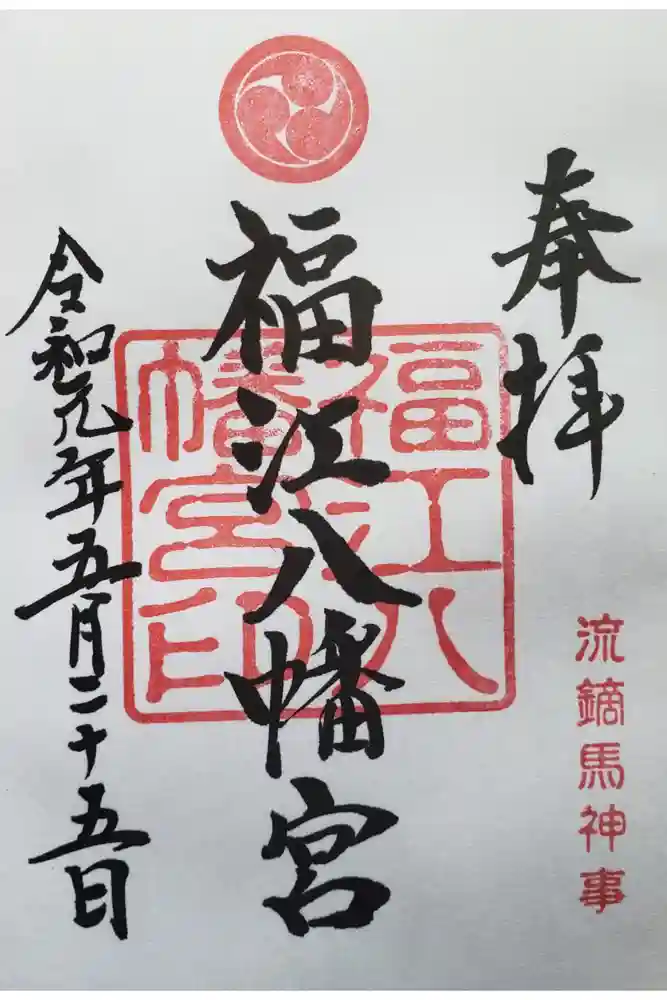 奉拝
流鏑馬神事
福江八幡宮
福江八
幡宮印
令和元年五月二十五日